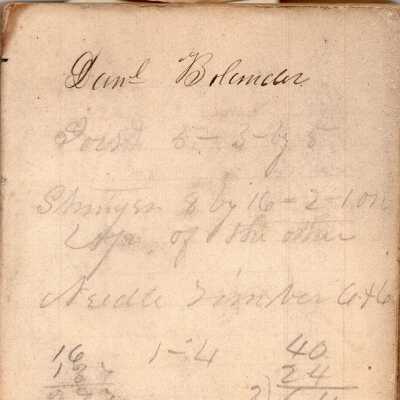 Danl Bolender
Posts 5 - 5 - by 5
8 by 16 - 2 - 1 on
Top of the other
Needle Timber 6+6
16 1 - 4 40
24